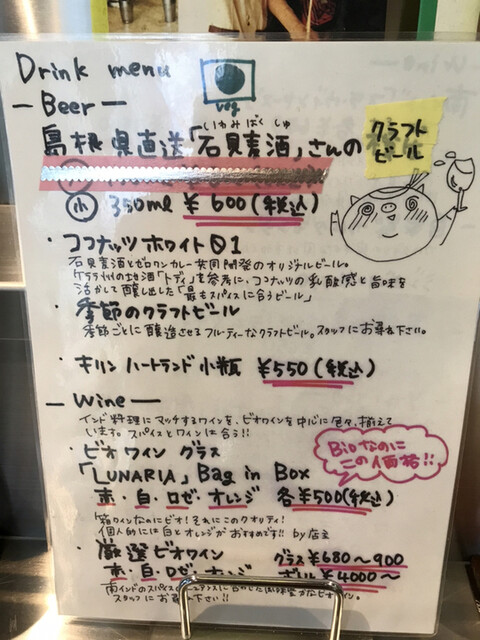 Drink menu
veg
— Beer —
いわみばくしゅ
島根県直送「石見麦酒」さんの
クラフト
ビール
小 350ml ¥600(税込)
・ココナッツホワイト01
石見麦酒とゼロワンカレー共同開発のオリジナルビール。
ケララ州の地酒「トディ」を参考に、ココナッツの乳酸感と旨味を
活かして醸し出した「最もスパイスに合うビール」
・季節のクラフトビール
季節ごとに醸造させるフルーティーなクラフトビール。スタッフにお尋ね下さい。
・キリン ハートランド小瓶 ¥550(税込)
— Wine —
インド料理にマッチするワインを、ビオワインを中心に色々、揃えて
います。スパイスとワインは合う!!
・ビオワイン グラス
Bioなのに
この価格!!
「LUNARIA」Bag in Box
赤・白・ロゼ・オレンジ 各¥500(税込)
箱ワインなのにビオ!それにこのクオリティ!
個人的には白とオレンジがおすすめです!! by店主
・厳選ビオワイン グラス¥680〜900
赤・白・ロゼ・オレンジ ボトル¥4000〜
南インドのスパイスの
スタッフにお尋ね下さい!!